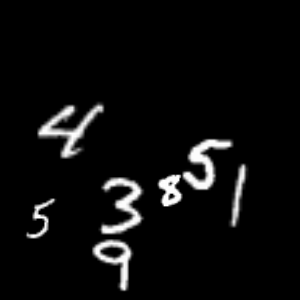 4
5 3 8 5 1
9